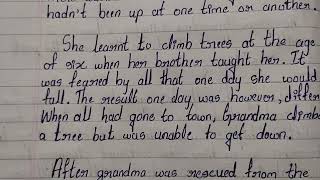 hadn't been up at one time or another.
She learnt to climb trees at the age
of six when her brother taught her. It
was feared by all that one day she would
fall. The result one day was however, differ
When all had gone to town, Grandma climbe
a tree but was unable to get down.
After grandma was rescued from the